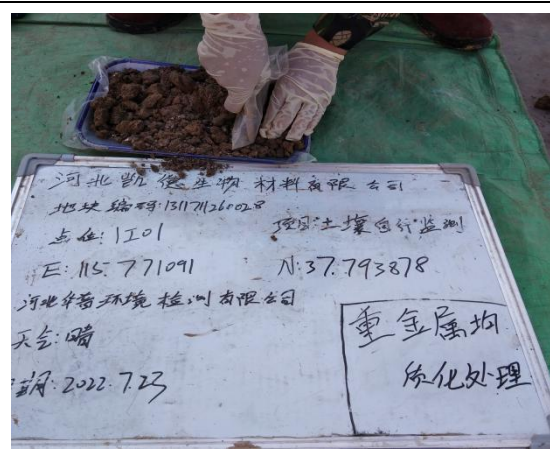 河北凯德生物材料有限公司
地块编码:1311711260028
点位:1I01
项目:土壤自行监测
E:115.771091
N:37.793878
河北华普环境检测有限公司
天气:晴
日期:2022.7.23
重金属均
质化处理